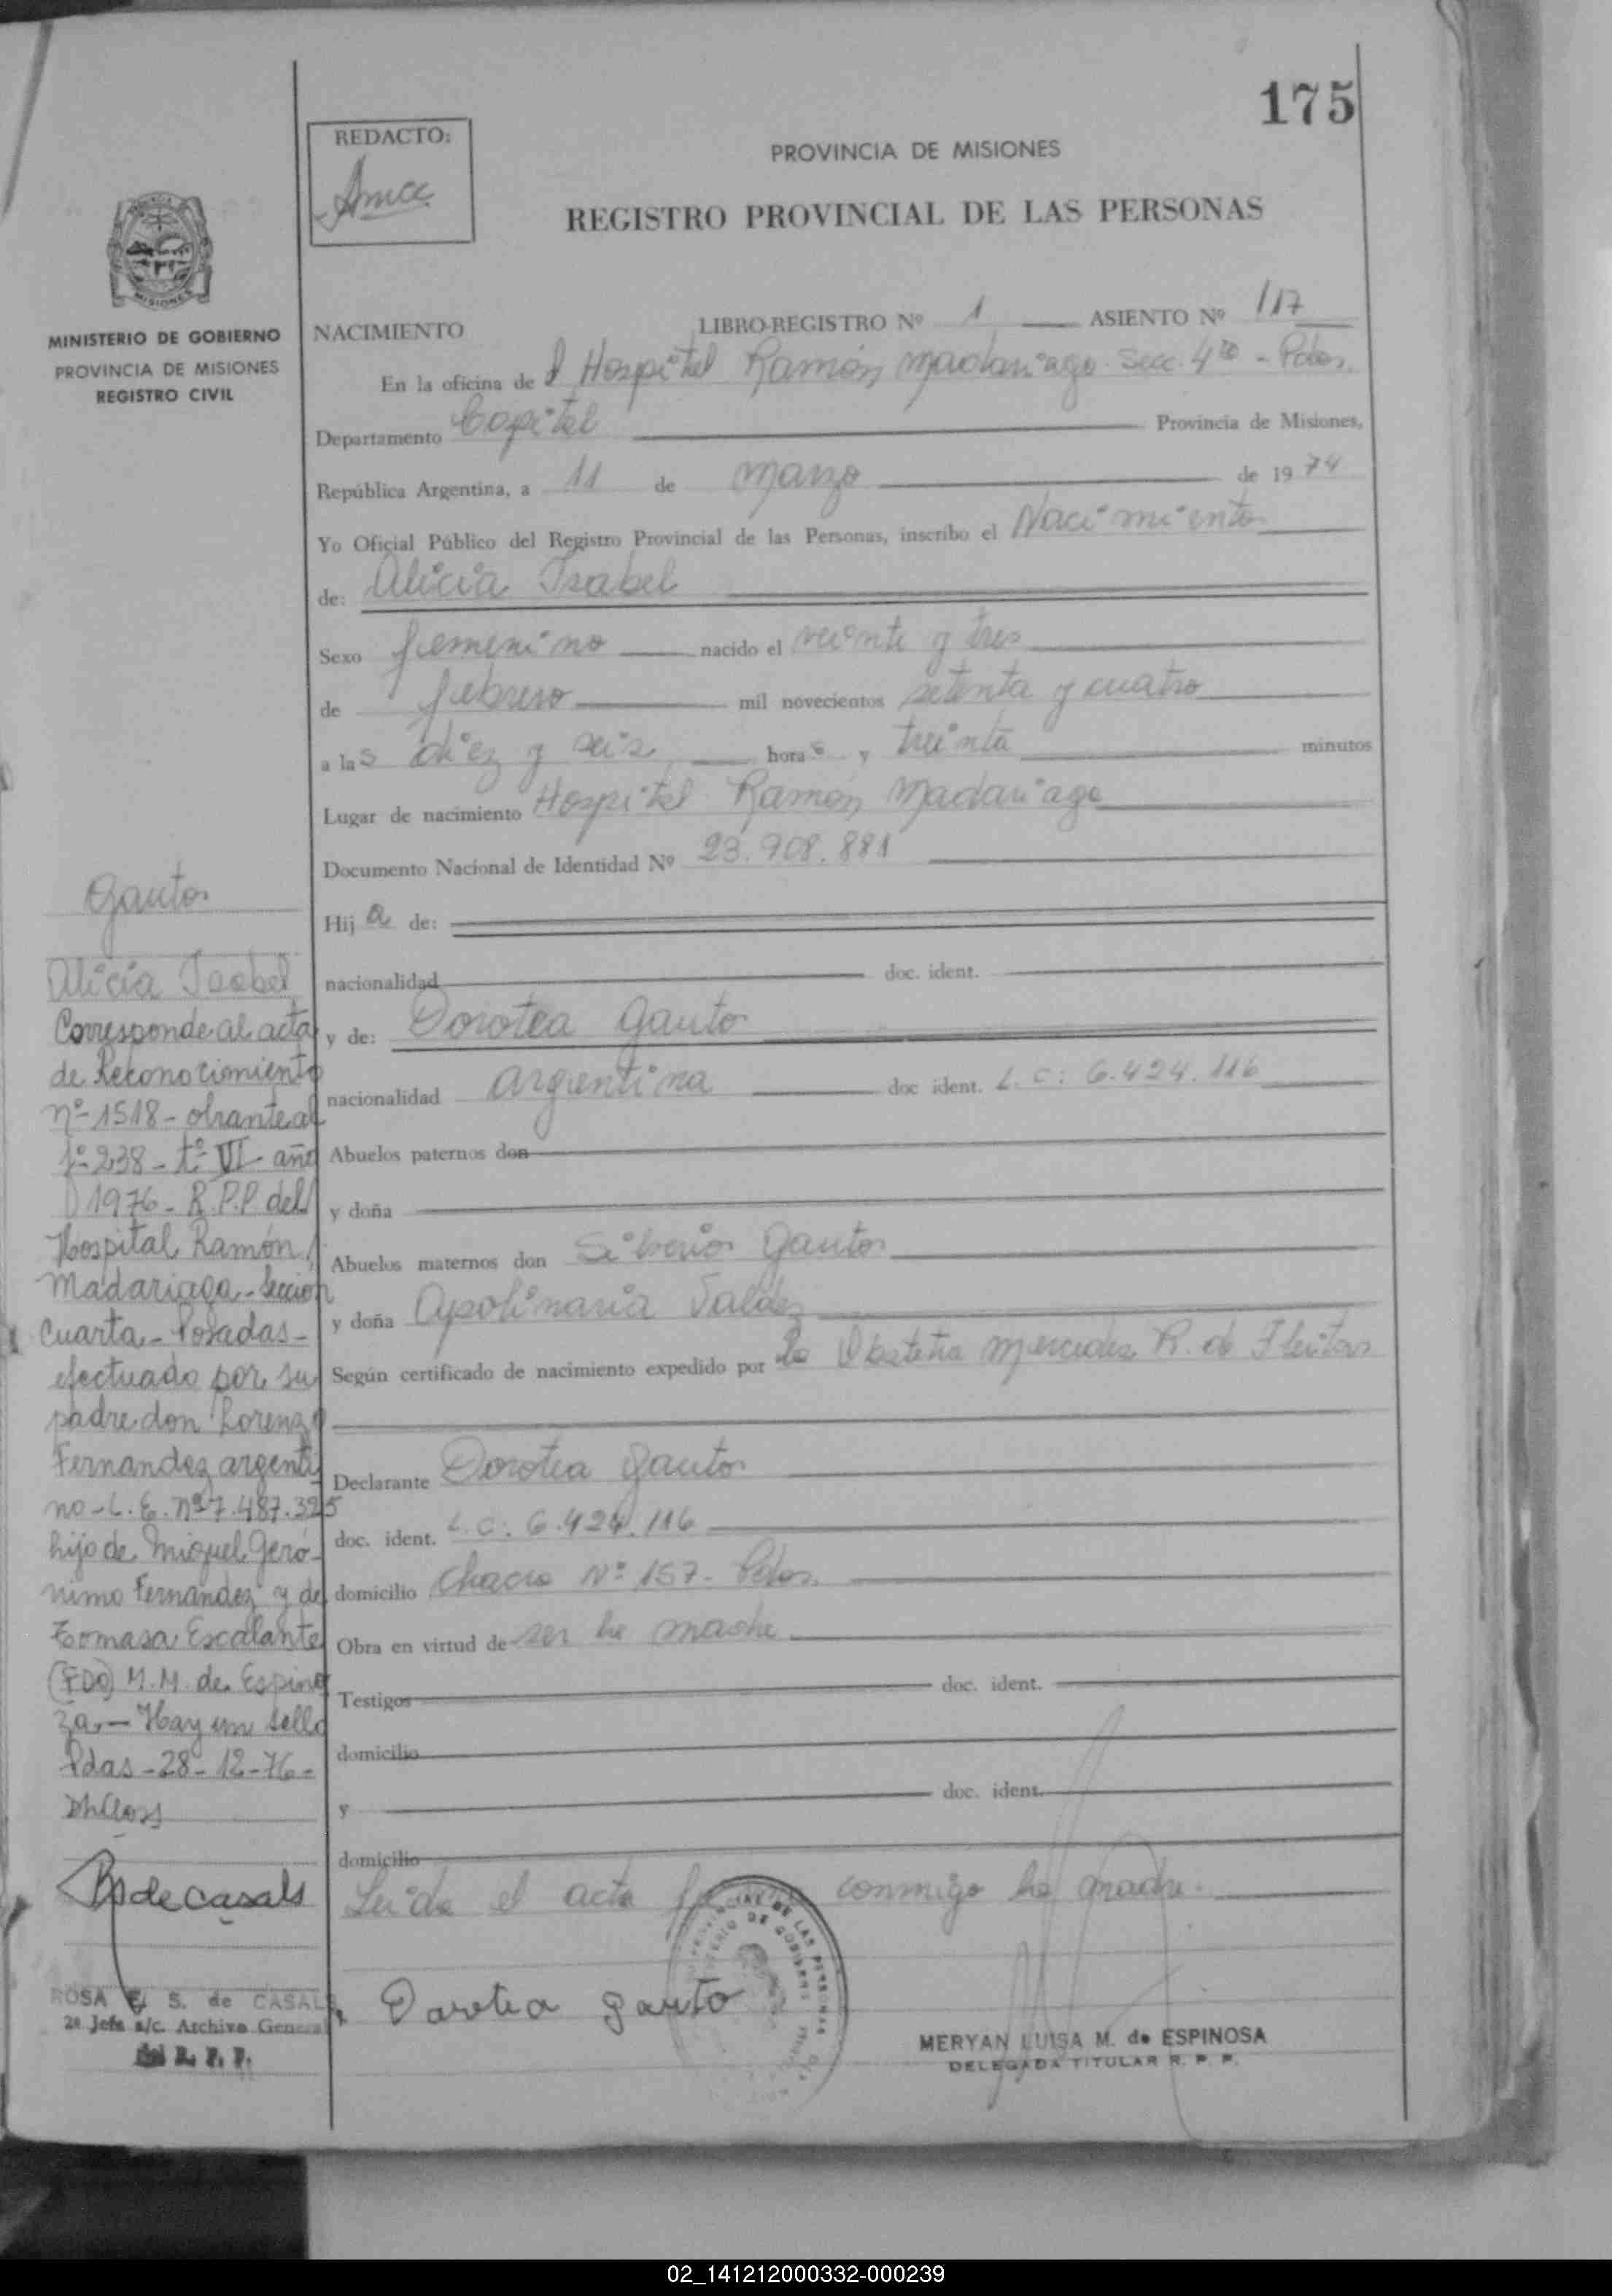 175
REDACTO:
PROVINCIA DE MISIONES
REGISTRO PROVINCIAL DE LAS PERSONAS
MISIONES
MINISTERIO DE GOBIERNO
PROVINCIA DE MISIONES
REGISTRO CIVIL
NACIMIENTO LIBRO-REGISTRO Nº 1 ASIENTO Nº 117
En la oficina de l Hospital Ramón Madariaga Secc. 4ta - Pdas.
Departamento Capital Provincia de Misiones,
República Argentina, a 11 de Marzo de 1974
Yo Oficial Público del Registro Provincial de las Personas, inscribo el Nacimiento
de: Alicia Isabel
Sexo femenino nacido el veinte y tres
de febrero mil novecientos setenta y cuatro
a las diez y seis horas y treinta minutos
Lugar de nacimiento Hospital Ramón Madariaga
Documento Nacional de Identidad Nº 23.908.881
Hija de:
nacionalidad doc. ident.
y de: Dorotea Gauto
nacionalidad argentina doc ident. L.C: 6.424.116
Abuelos paternos don
y doña
Abuelos maternos don Silverio Gauto
y doña Apolinaria Valdez
Según certificado de nacimiento expedido por la Obstetra Mercedes R. de Fleitas
Declarante Dorotea Gauto
doc. ident. L.C: 6.424.116
domicilio Chacra Nº 157. Pdas.
Obra en virtud de ser la madre
Testigos doc. ident.
domicilio
y doc. ident.
domicilio
Leida el acta conmigo la madre.
Dorotea Gauto
MERYAN LUISA M. de ESPINOSA
DELEGADA TITULAR R. P. P.
Gauto
Alicia Isabel
Corresponde al acta
de Reconocimiento
nº 1518 - obrante al
fº 238 - tº VI - año
1976 - R.P.P. del
Hospital Ramón
Madariaga - Sección
Cuarta - Posadas -
efectuado por su
padre don Lorenzo
Fernandez argenti
no - L.E. Nº 7.487.325
hijo de Miguel Gero-
nimo Fernández y de
Tomasa Escalante
(FDO) M.M. de Espino
za. - Hay un sello
Pdas - 28 - 12 - 76 -
de Casals
ROSA E. S. de CASALS
2ª Jefe a/c. Archivo General
del R. P. P.
02_141212000332-000239